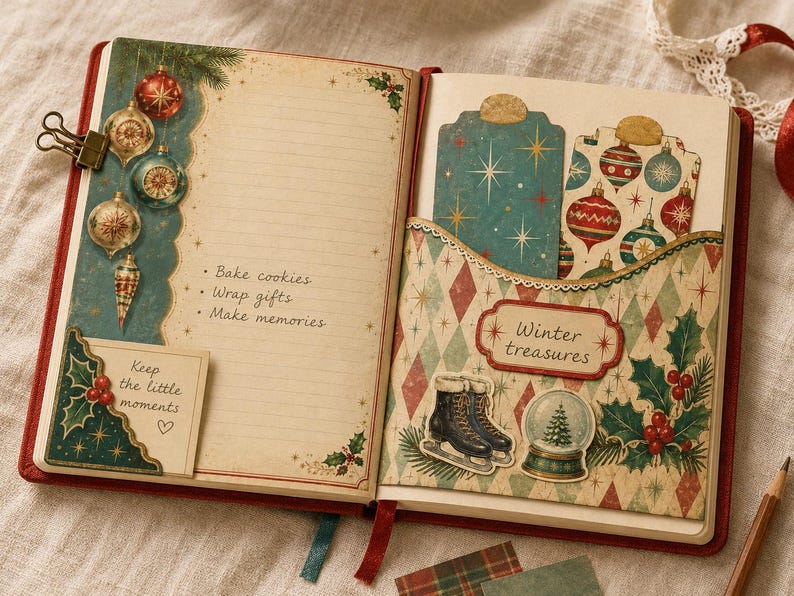 • Bake cookies
• Wrap gifts
• Make memories
Keep
the little
moments
♡
Winter
treasures